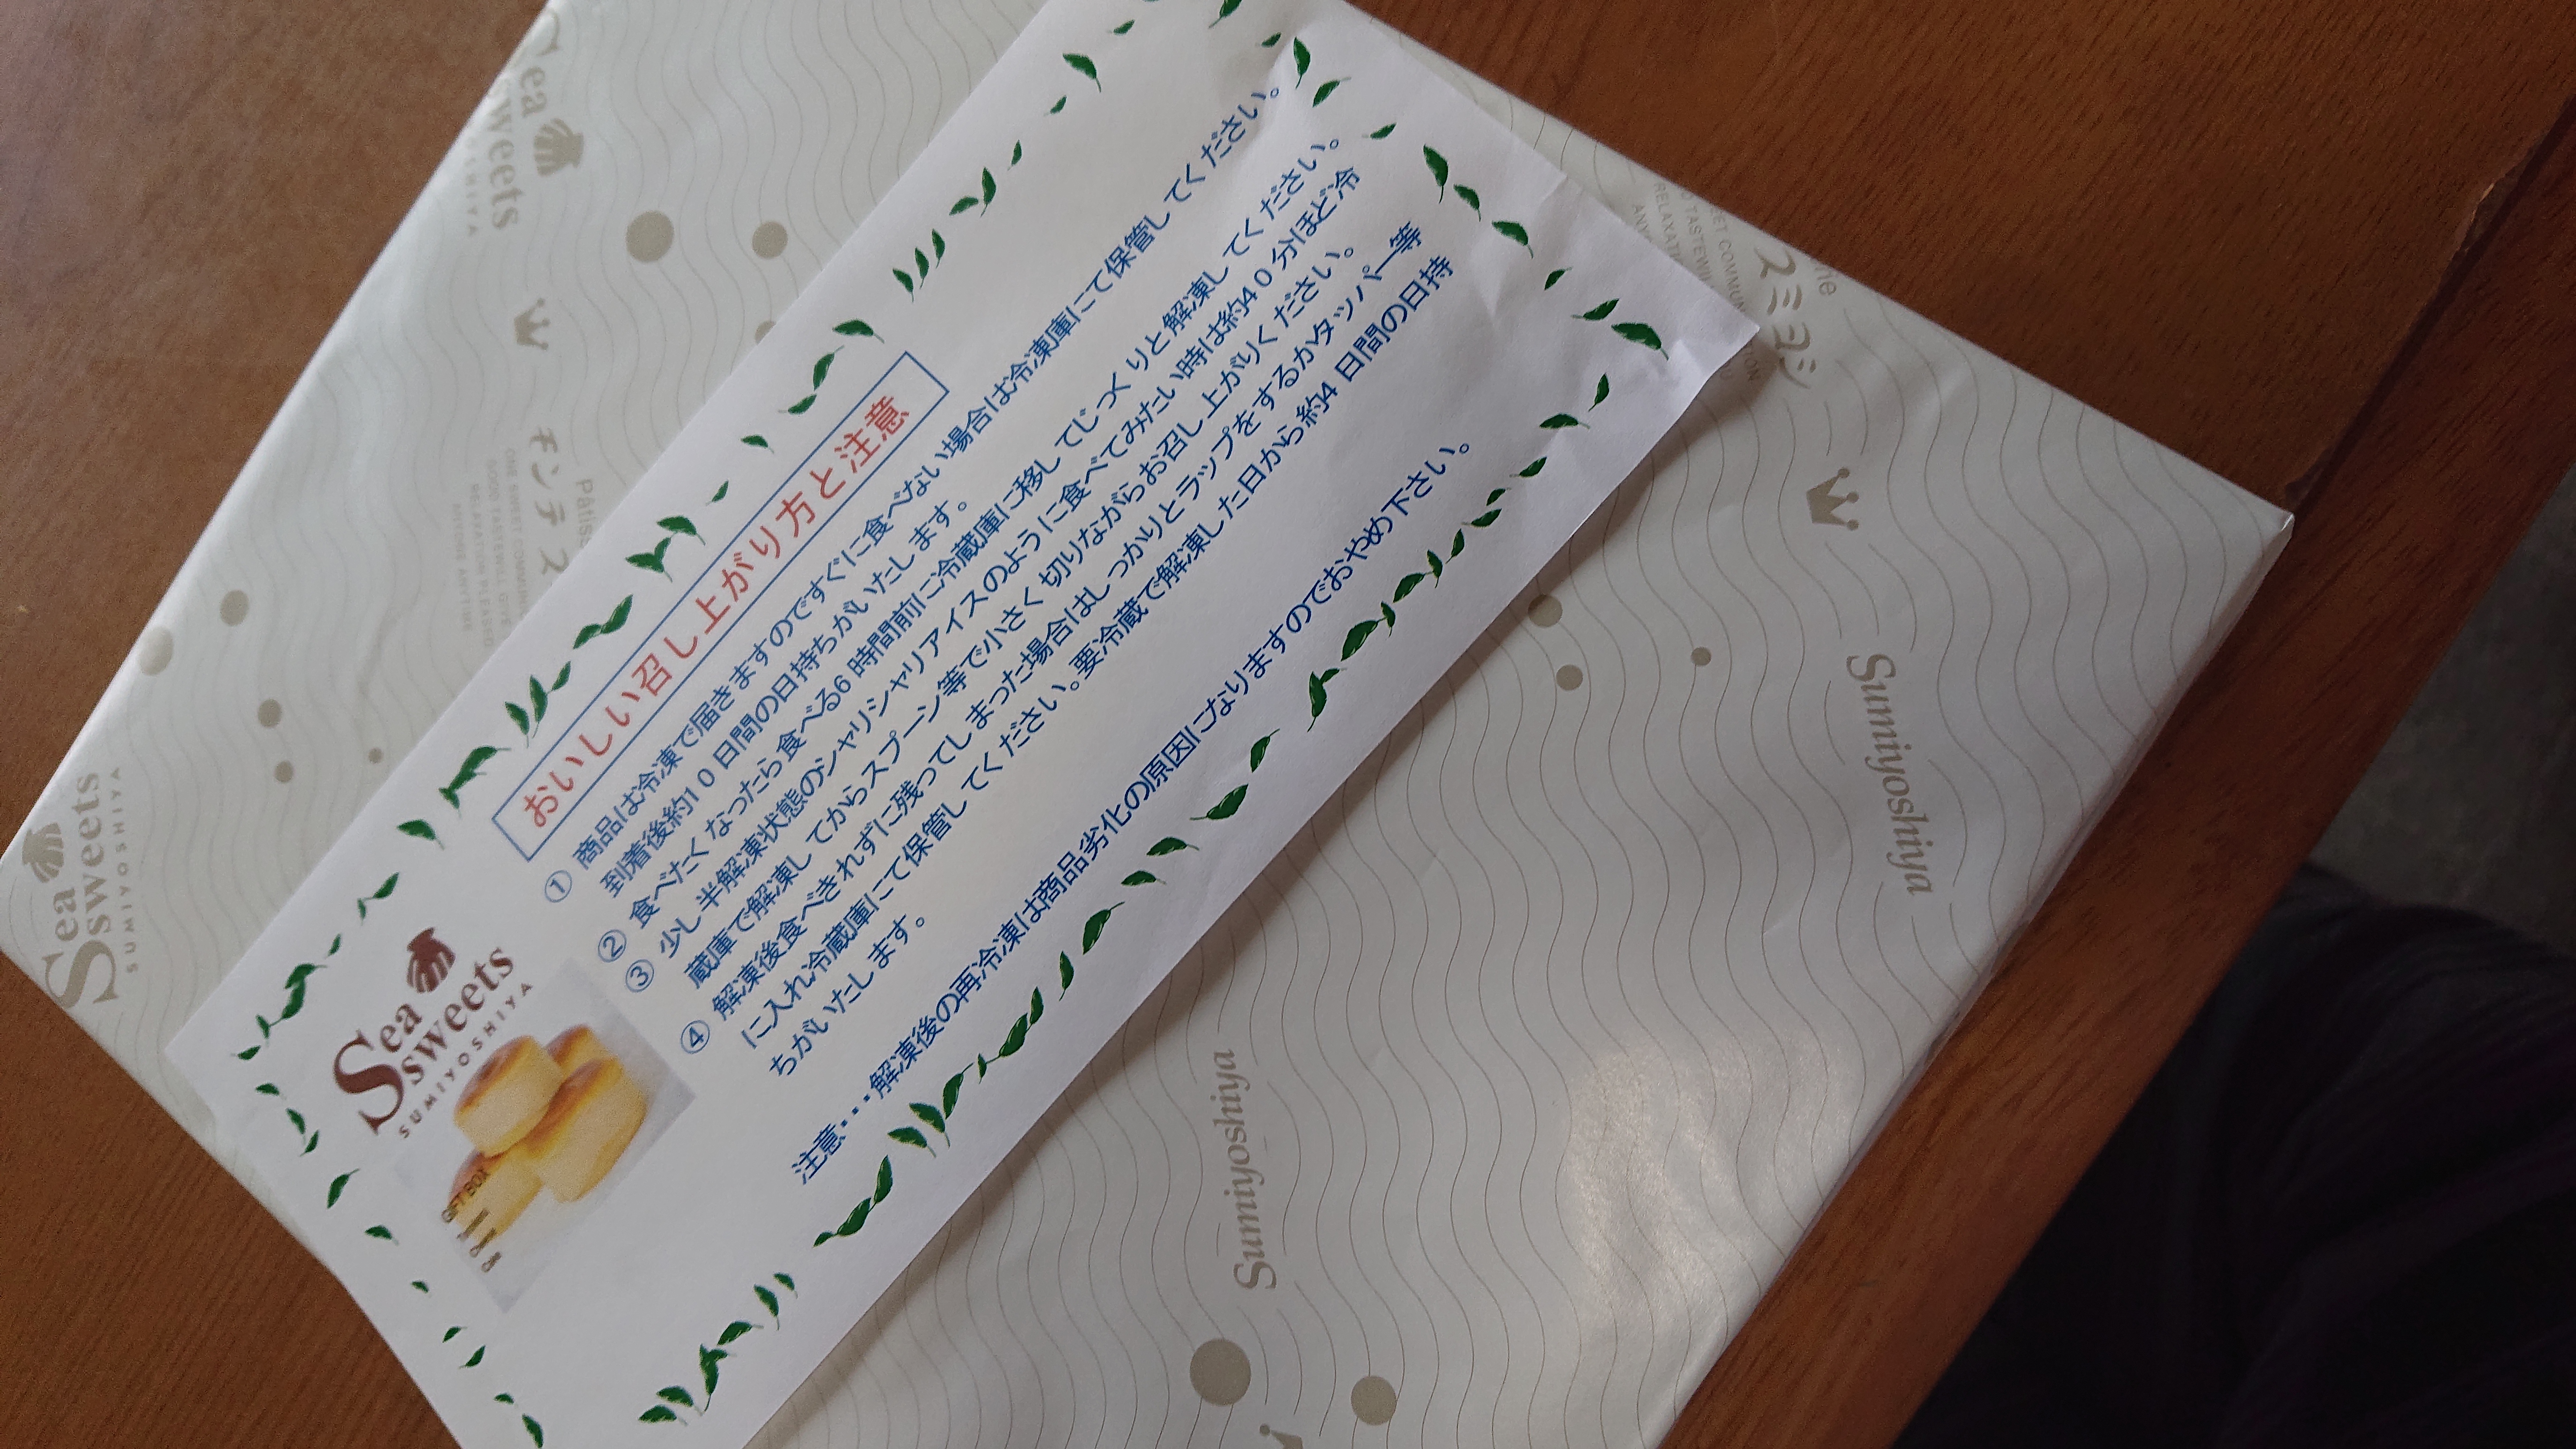 Sea
sweets
SUMIYOSHIYA
おいしい召し上がり方と注意
① 商品は冷凍で届きますのですぐに食べない場合は冷凍庫にて保管してください。
到着後約10日間の日持ちがいたします。
② 食べたくなったら食べる6時間前に冷蔵庫に移してじっくりと解凍してください。
③ 少し半解凍状態のシャリシャリアイスのように食べてみたい時は約40分ほど冷
蔵庫で解凍してからスプーン等で小さく切りながらお召し上がりください。
④ 解凍後食べきれずに残ってしまった場合はしっかりとラップをするかタッパー等
に入れ冷蔵庫にて保管してください。要冷蔵で解凍した日から約4日間の日持
ちがいたします。
注意・・・解凍後の再冷凍は商品劣化の原因になりますのでおやめ下さい。
GIFT BOX
Sea
sweets
SUMIYOSHIYA
Sea
sweets
キンテス
スミヨシ
Sumiyoshiya
Sumiyoshiya